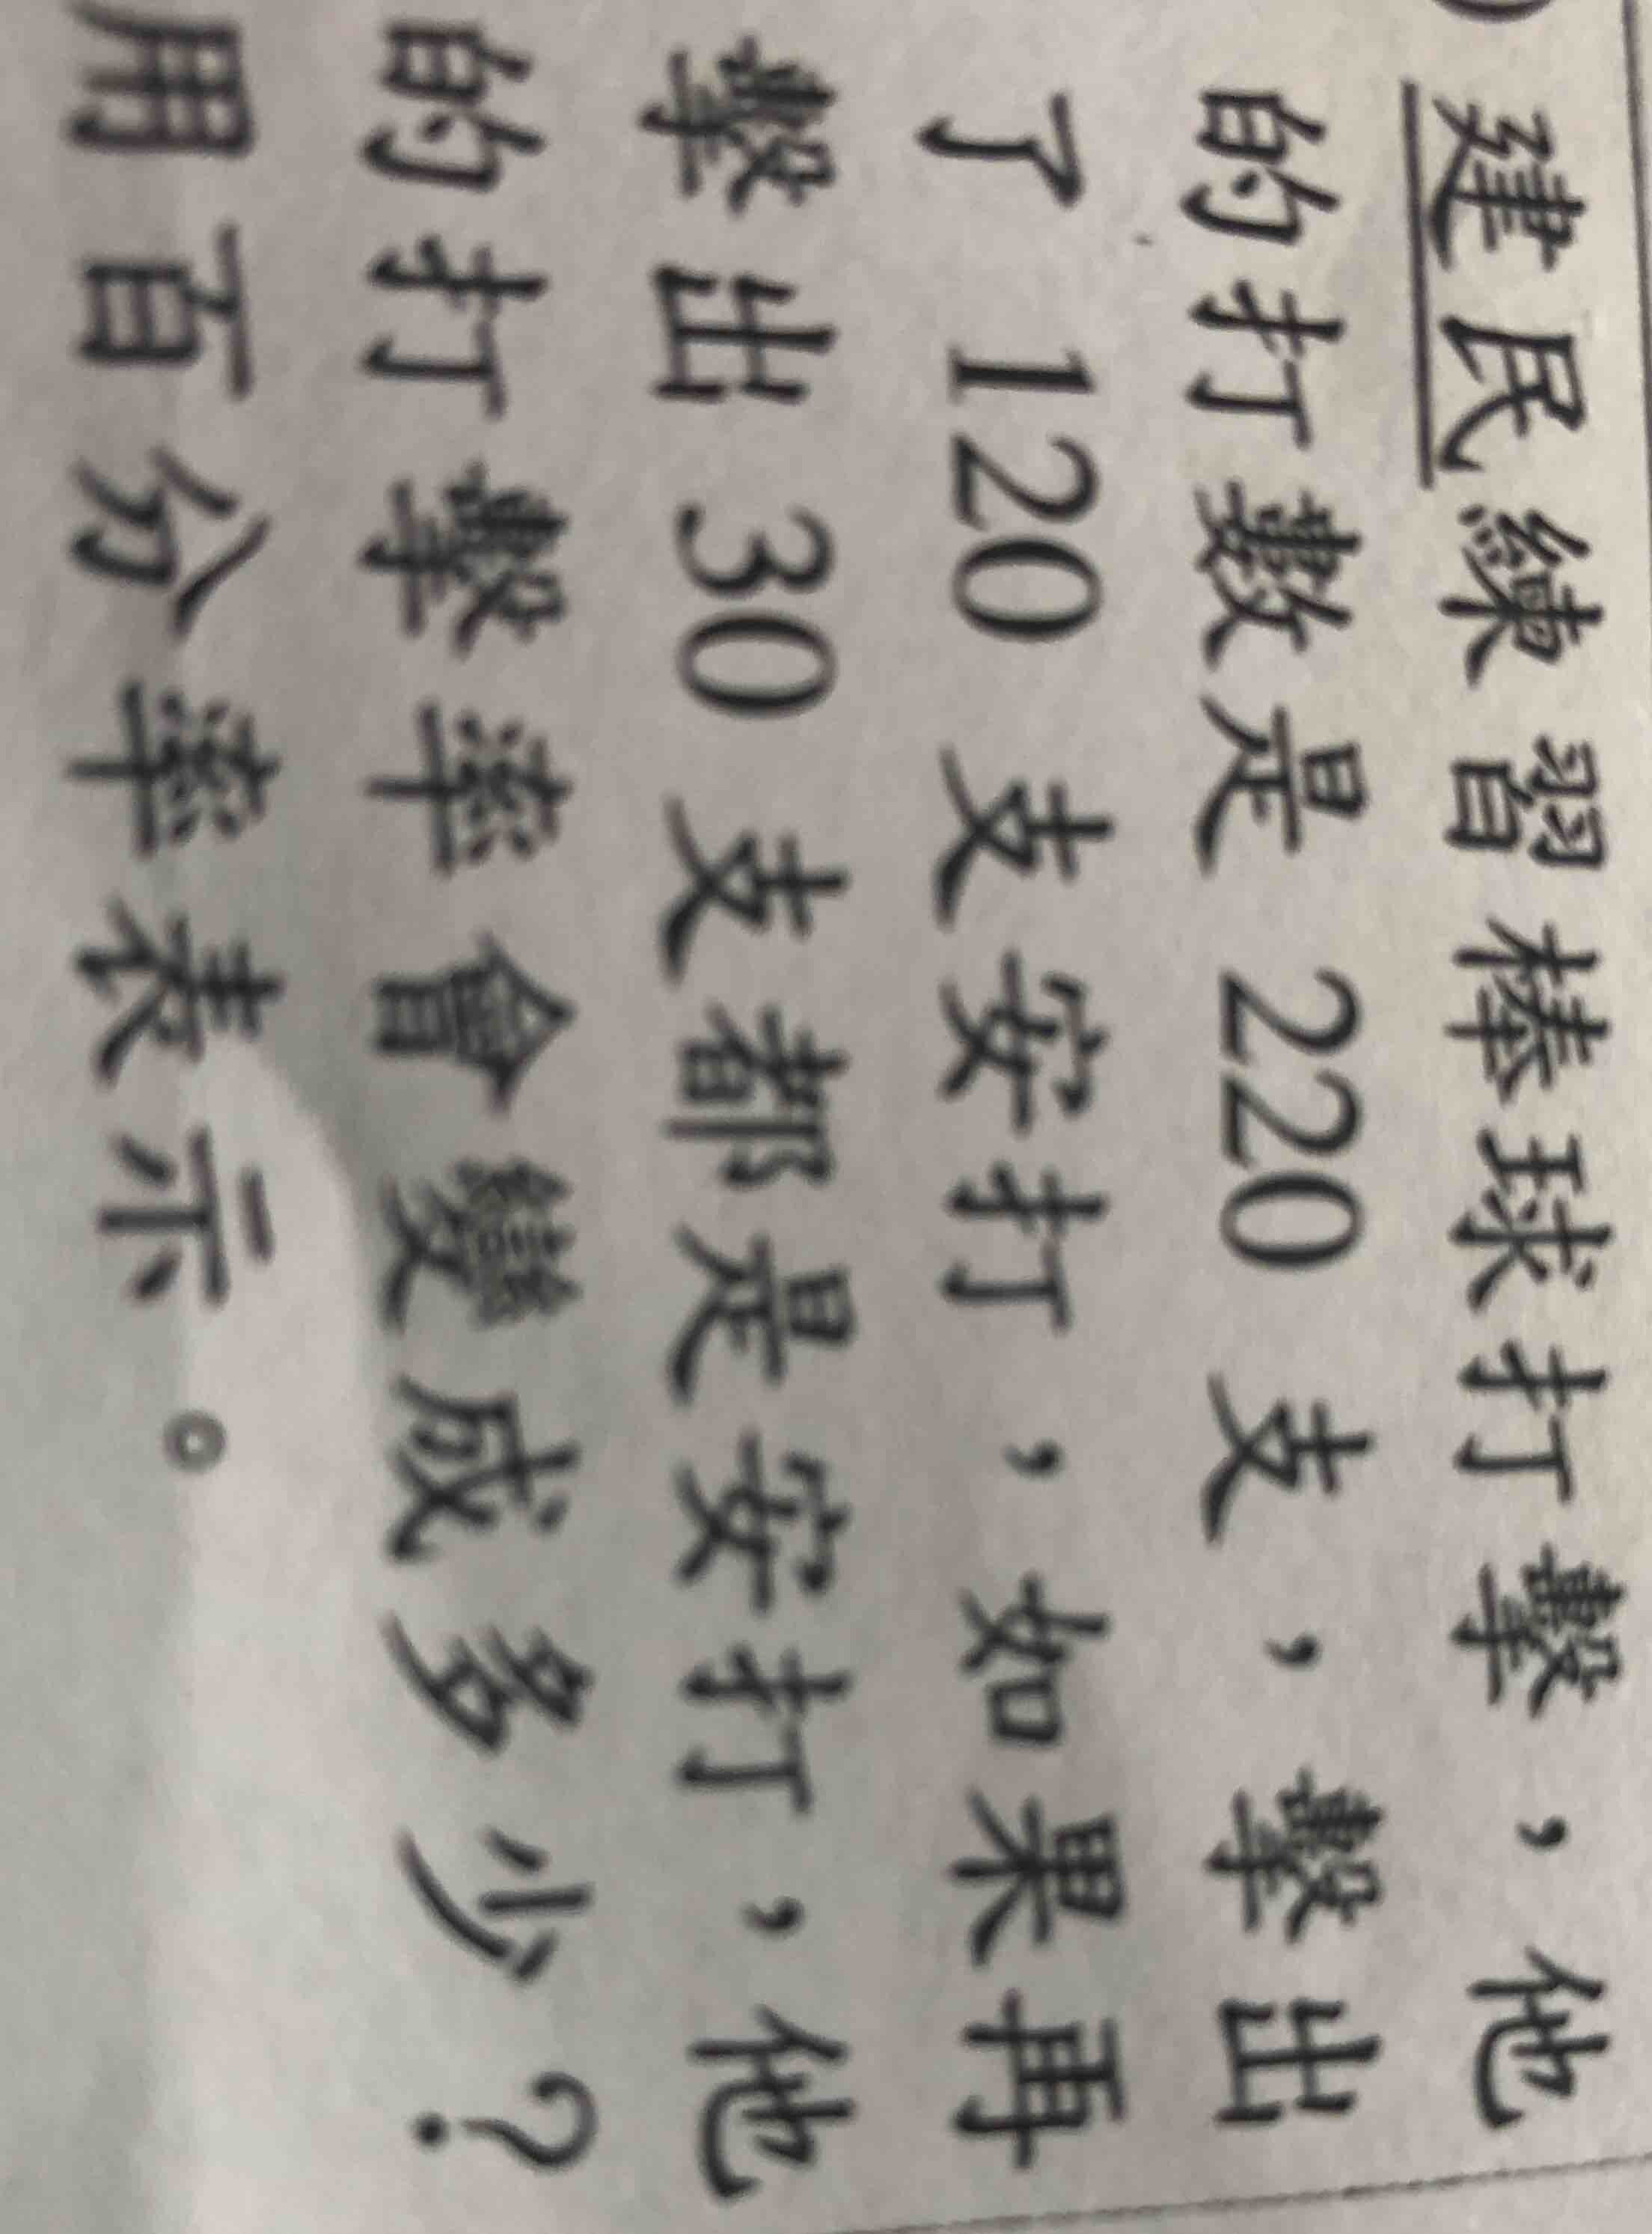 建民練習棒球打擊，他
的打數是 220 支，擊出
了 120 支安打，如果再
擊出 30 支都是安打，他
的打擊率會變成多少？
用百分率表示。